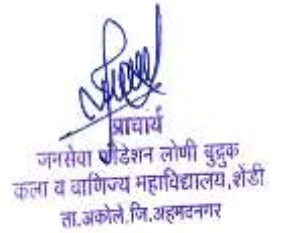 प्राचार्य
जनसेवा फौंडेशन लोणी बुद्रुक
कला व वाणिज्य महाविद्यालय, शेंडी
ता.अकोले.जि.अहमदनगर